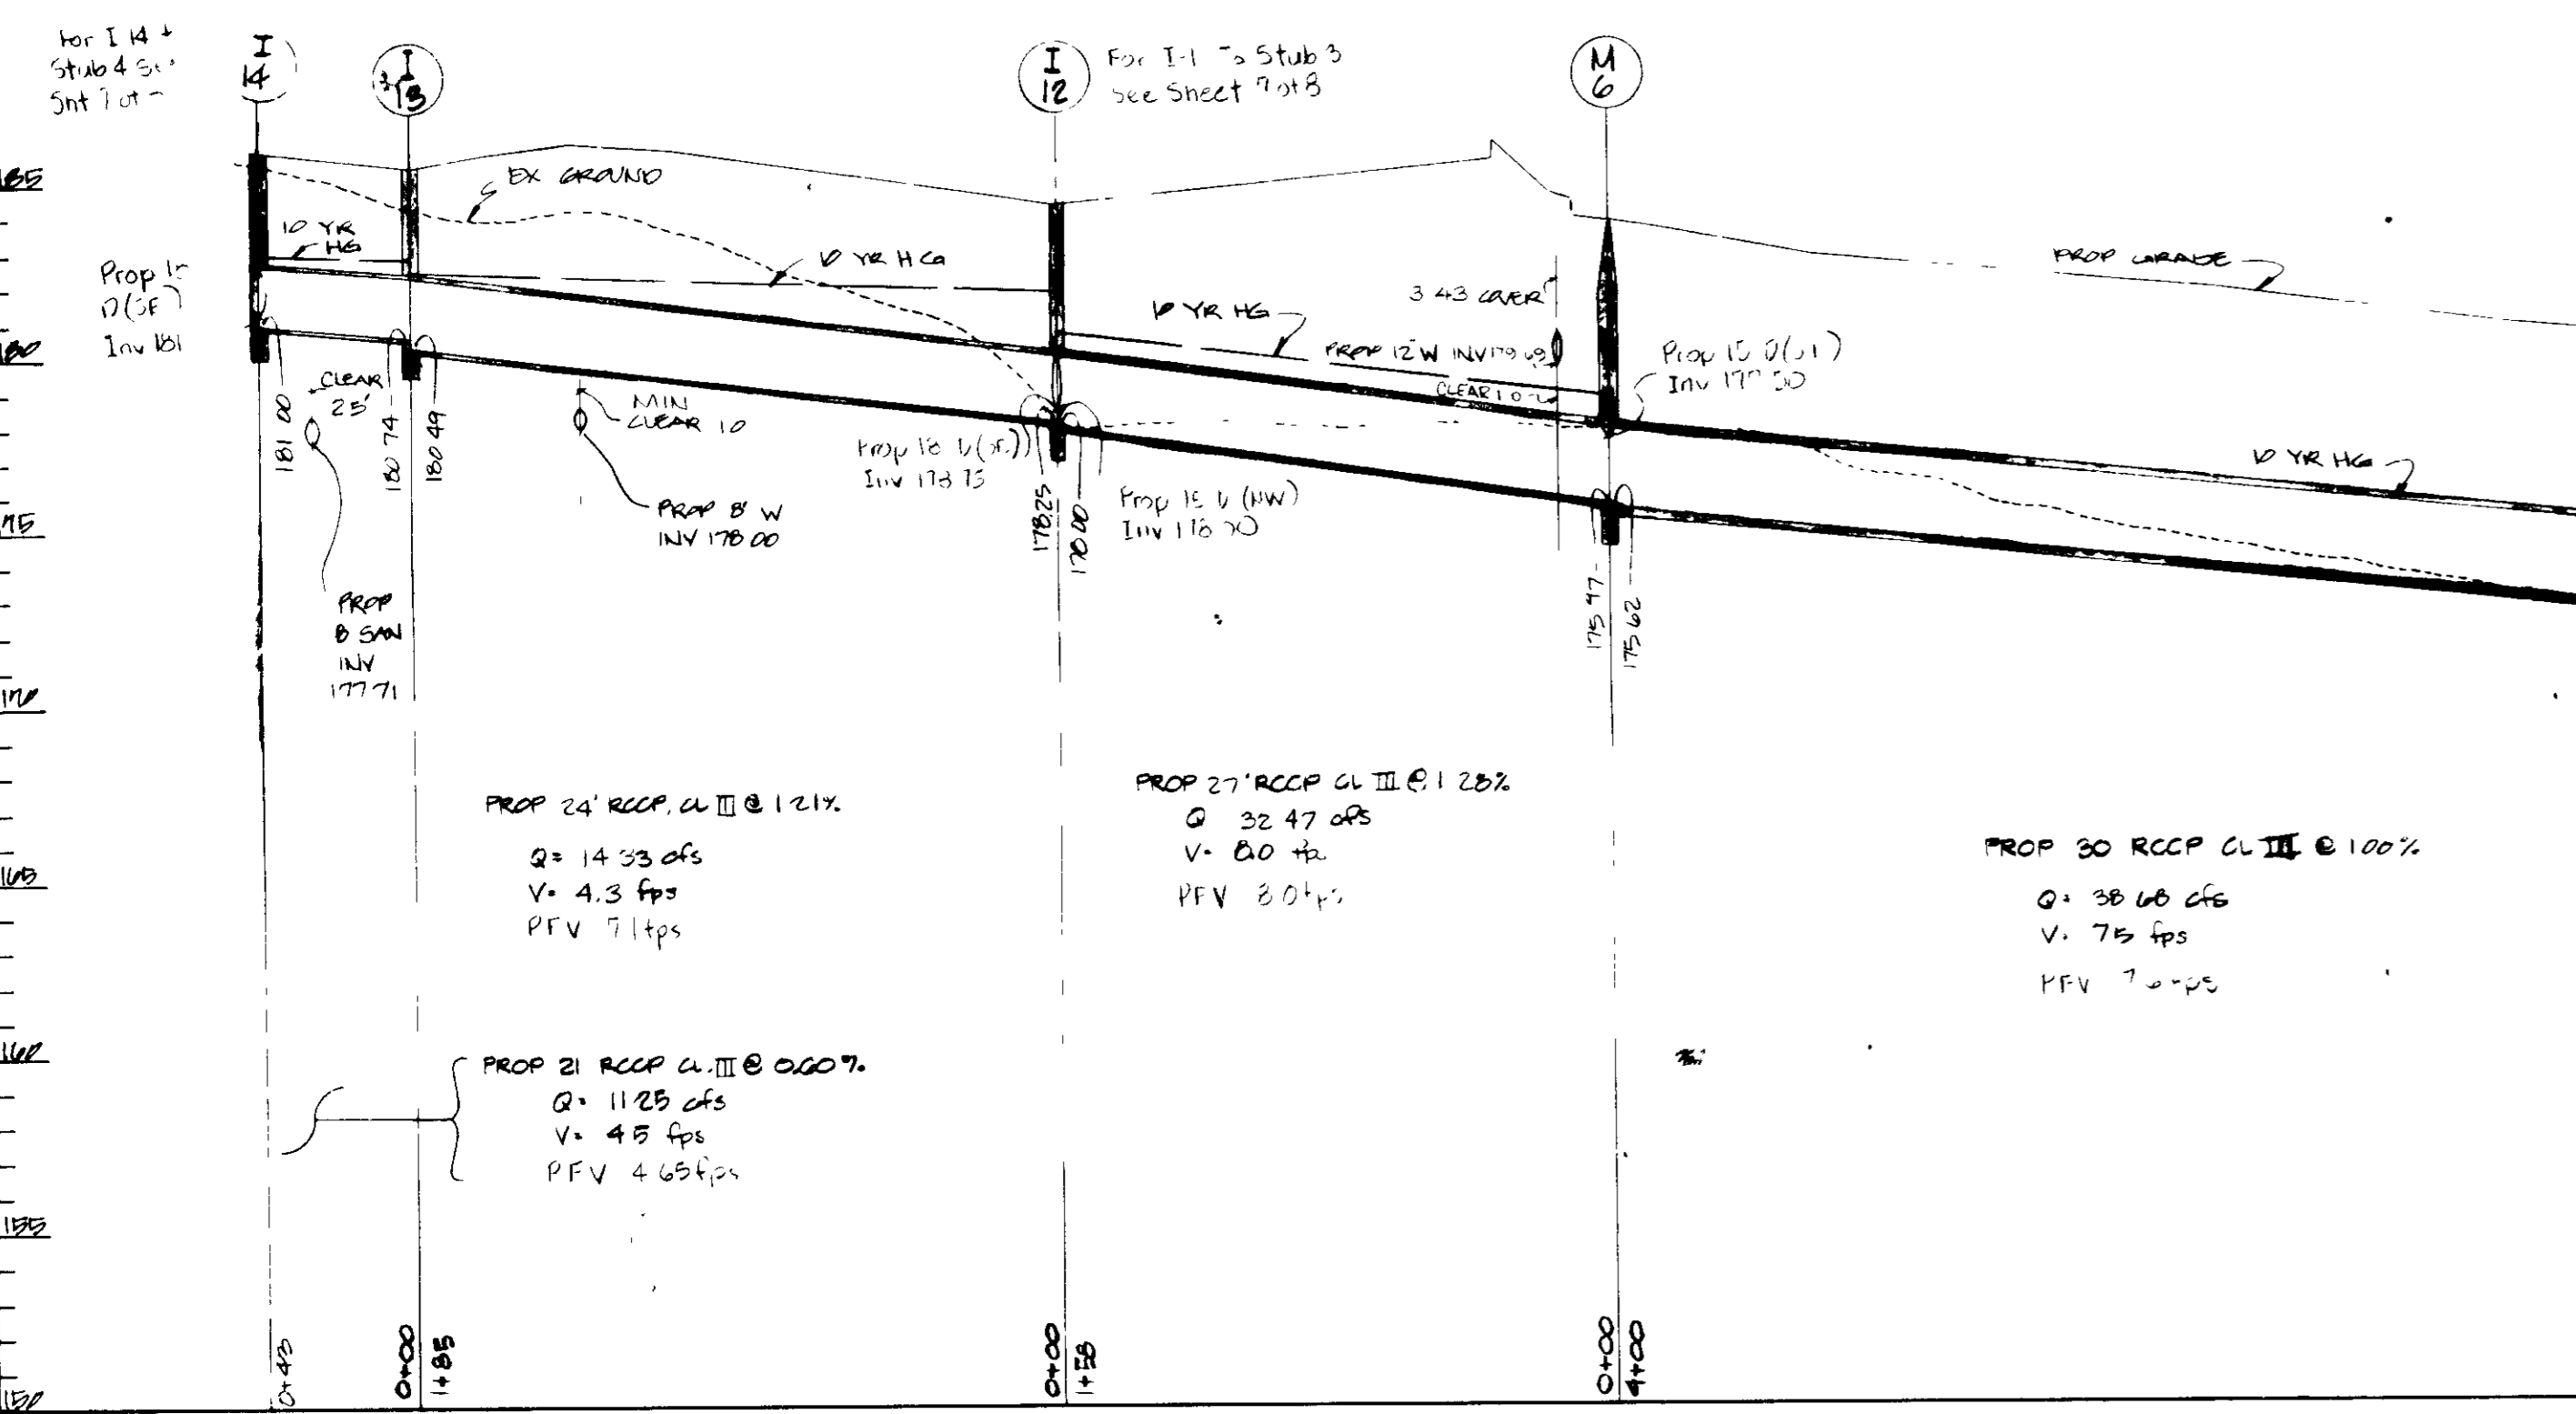 For I 14 &
Stub 4 See
Sht 7 of
I
14
I
13
I
12
For I-1 To Stub 3
See Sheet 7 of 8
M
6
185
EX GROUND
10 YR
HG
10 YR HG
Prop
Inv 181
180
CLEAR
25'
181 00
180 74
180 49
MIN
CLEAR 10
PROP 8" W
INV 178 00
PROP
8 SAN
INV
177 71
Prop 18 D
Inv 178 75
178.25
178 00
Prop 15 D (NW)
Inv
10 YR HG
3 43 COVER
PROP 12" W INV 179 69
CLEAR 1 0
Prop 15 D
Inv
PROP GRADE
10 YR HG
175 97
175 62
175
170
PROP 24" RCCP, CL III @ 1 21%
Q= 14 33 cfs
V= 4.3 fps
PFV 7 1 fps
PROP 27" RCCP CL III @ 1 28%
Q 32 47 cfs
V= 8.0 fps
PFV 8 0 fps
PROP 30 RCCP CL III @ 1 00%
Q= 38 68 cfs
V= 7 5 fps
PFV 7 6 fps
165
160
PROP 21 RCCP CL. III @ 0.60%
Q= 11 25 cfs
V= 4 5 fps
PFV 4 65 fps
155
150
0+43
0+00
1+85
0+00
1+58
0+00
4+00